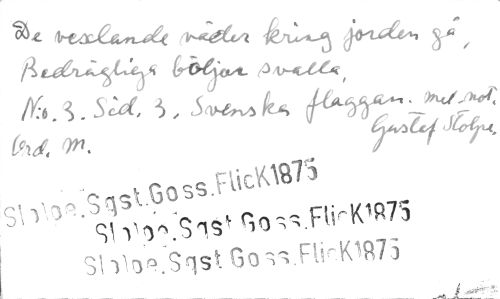 De vexlande väder kring jorden gå,
Bedrägliga böljor svalla,
N:o. 3. Sid. 3. Svenska flaggan. mel. not.
Gustaf Stolpe.
Ord. M.
Stolpe.Sgst.Goss.FlicK1875
Stolpe.Sgst Goss.FlicK1875
Stolpe.Sgst Goss.FlicK1875